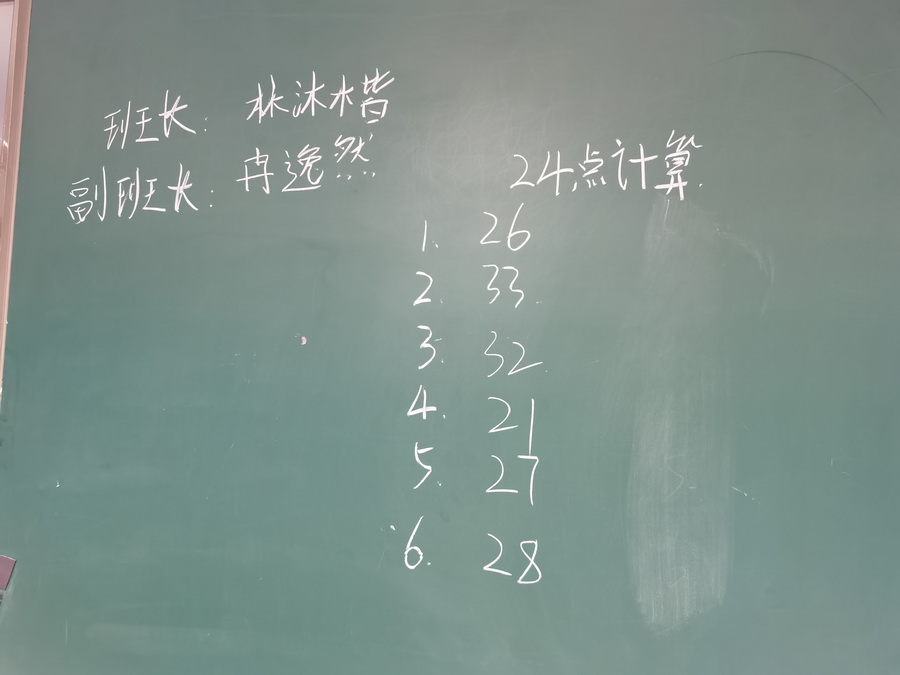 班长: 林沐楷
副班长: 冉逸然
24点计算.
1. 26
2. 33.
3. 32.
4. 21
5. 27
6. 28